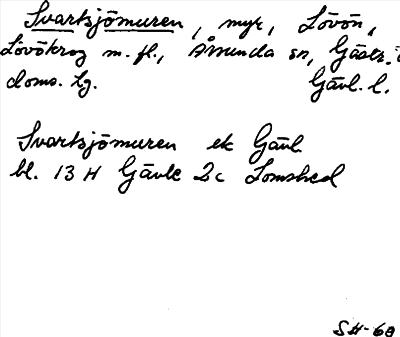 Svartsjömuren, myr, Lövön,
Lövökrog m. fl., Årsunda sn, Gästr.
doms. lg. Gävl. l.
Svartsjömuren ek Gävl.
bl. 13 H Gävle 2c Lomshed
SH-68